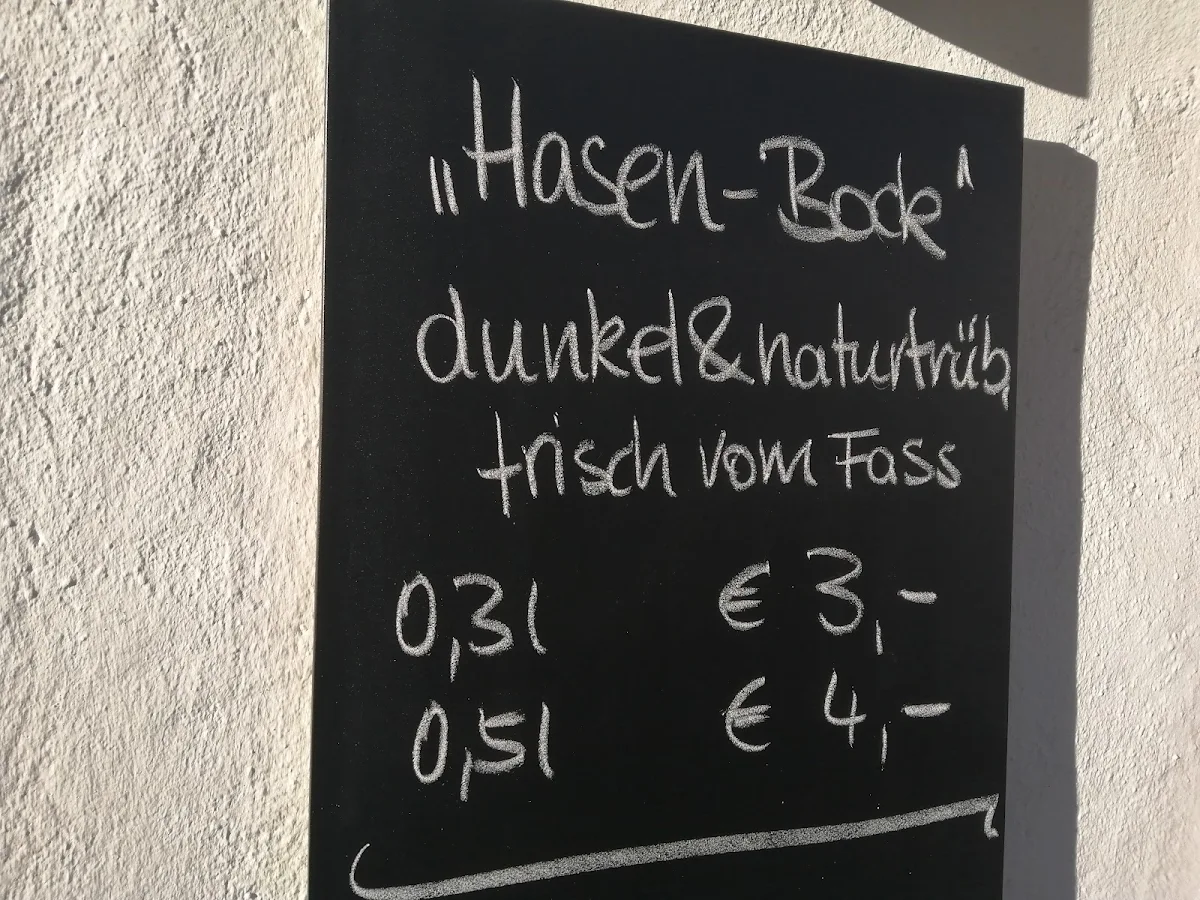 „Hasen-Bock“
dunkel & naturtrüb,
frisch vom Fass
0,3l € 3,-
0,5l € 4,-